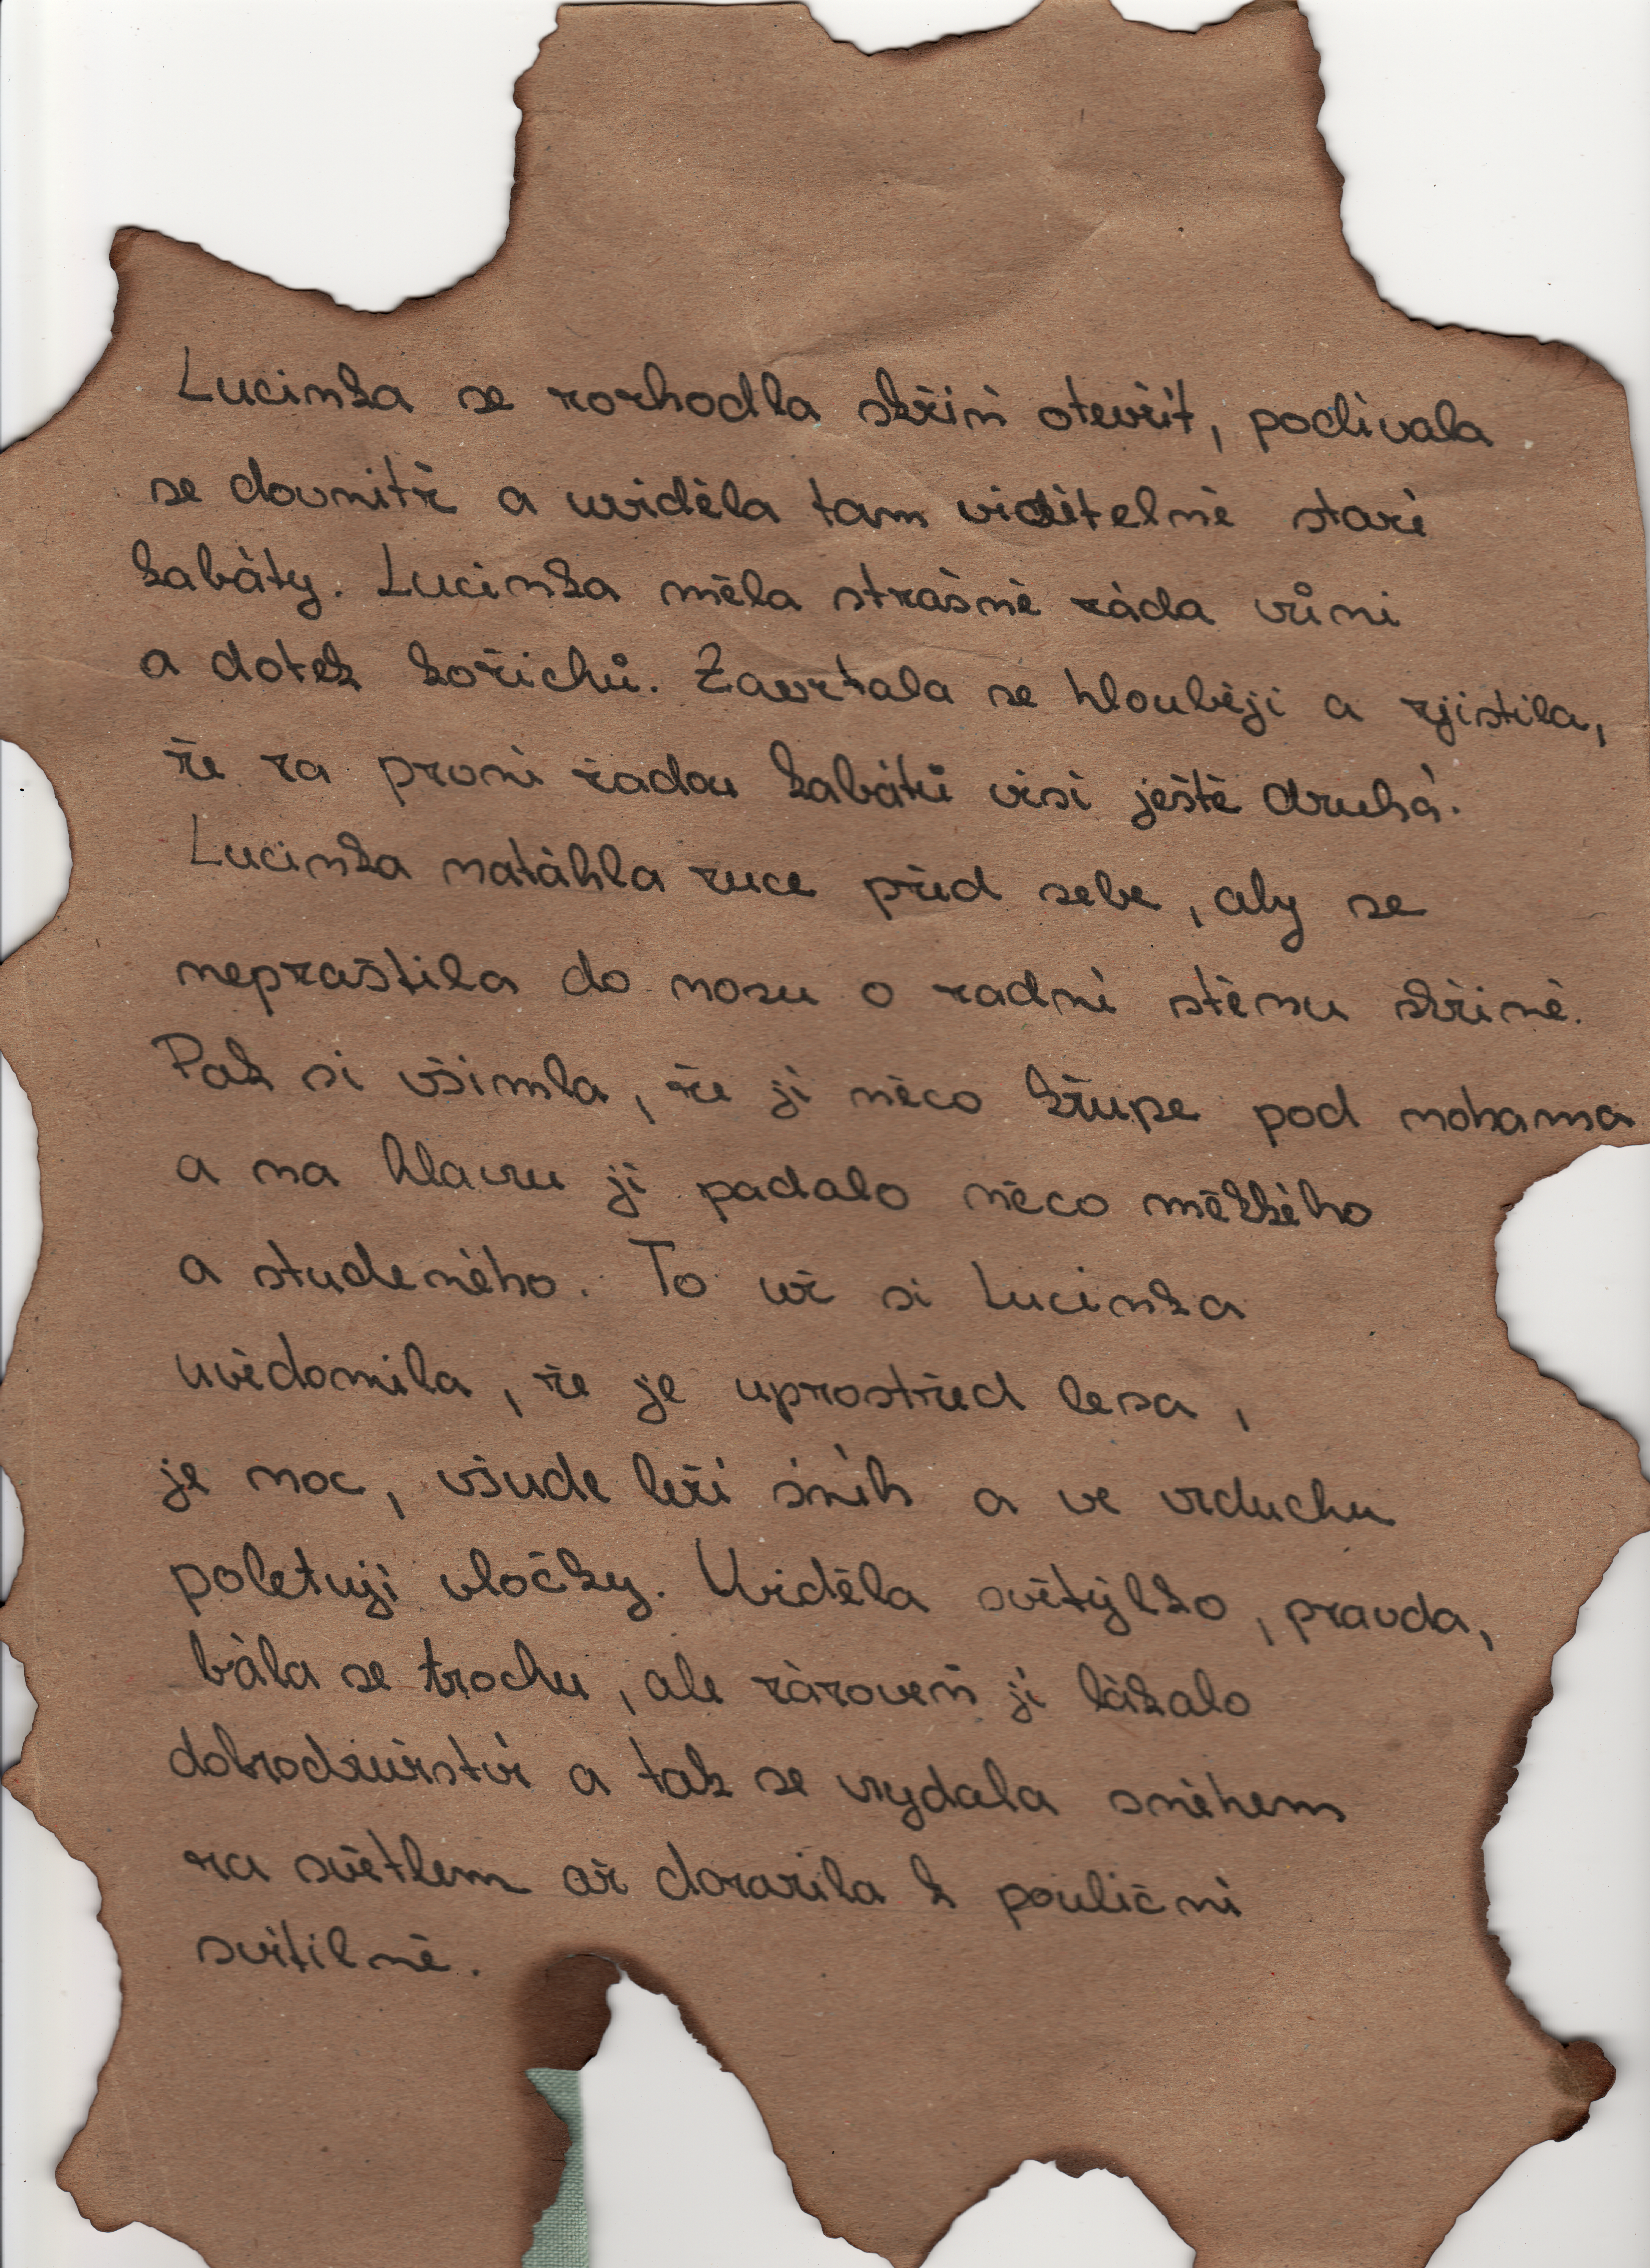 Lucinka se rozhodla skříň otevřít, podívala
se dovnitř a uviděla tam viditelně staré
kabáty. Lucinka měla strašně ráda vůni
a dotek kožichů. Zavrtala se hlouběji a zjistila,
že za první řadou kabátů visí ještě druhá.
Lucinka natáhla ruce před sebe, aby se
nepraštila do nosu o zadní stěnu skříně.
Pak si všimla, že jí něco křupe pod nohama
a na hlavu jí padalo něco měkkého
a studeného. To už si Lucinka
uvědomila, že je uprostřed lesa,
je noc, všude leží sníh a ve vzduchu
poletují vločky. Uviděla světýlko, pravda,
bála se trochu, ale zároveň jí lákalo
dobrodružství a tak se vydala sněhem
za světlem až dorazila k pouliční
svítilně.